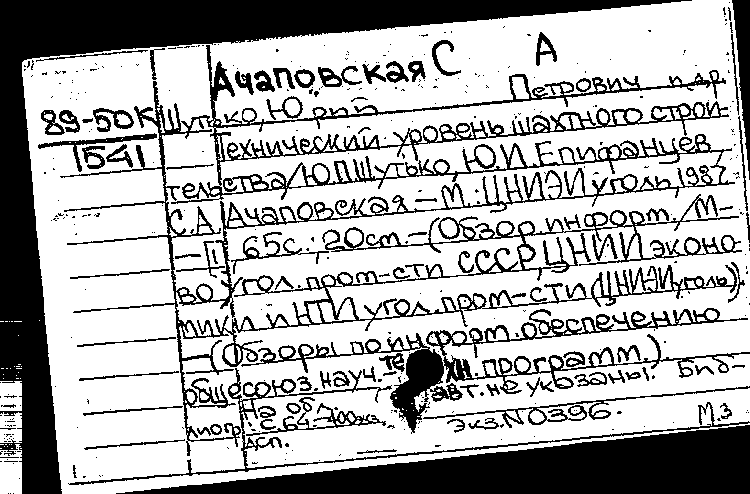 Ачаповская С А
89-50К Шутько, Юрий Петрович и др.
1541
Технический уровень шахтного строи-
тельства/Ю.П.Шутько, Ю.И.Епифанцев,
С.А. Ачаповская – М.: ЦНИЭИуголь, 1987
– [], 65с.; 20см. – (Обзор.информ./М-
во угол.пром-сти СССР, ЦНИИ эконо-
мики и НТИ угол.пром-сти (ЦНИЭИуголь)).
– (Обзоры по информ.обеспечению
общесоюз.науч.-техн.программ.)
На обл. авт.не указаны. Биб-
лиогр.: с.64- 700экз. Экз.N0396.
ДСП. М.З